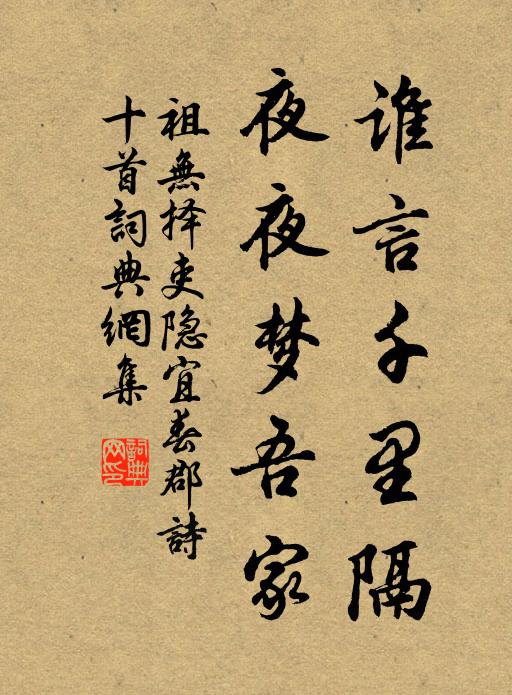 谁言千里隔
夜夜梦吾家
祖無择吏隐宜春郡詩
十首詞典網集
詞典
网印